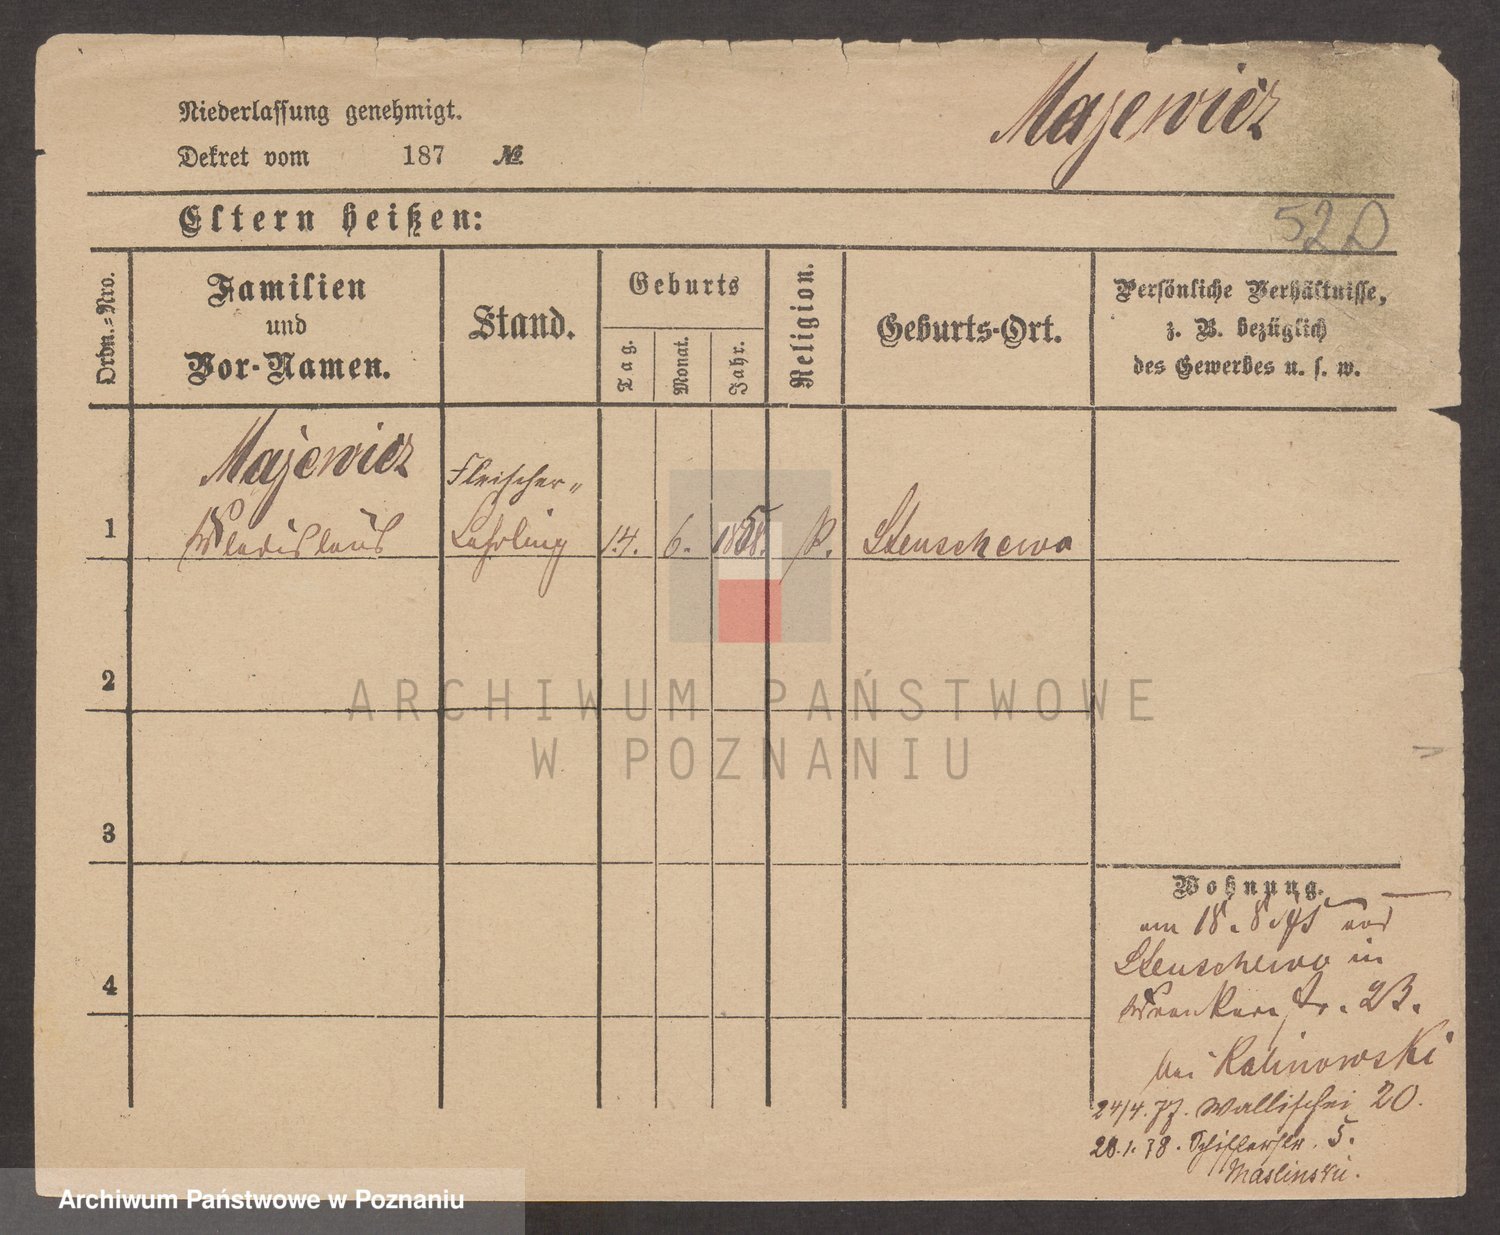 Majewicz
Niederlassung genehmigt.
Dekret vom 187 №
Eltern heißen:
52D
Ordn.-Nro.
Familien
und
Vor-Namen.
Stand.
Geburts
Tag.
Monat.
Jahr.
Religion.
Geburts-Ort.
Persönliche Verhältnisse,
z. B. bezüglich
des Gewerbes u. s. w.
Majewicz
Fleischer-
1 Wladislaus Lehrling 14. 6. 1858. P. Stenschewo
2
3
4
Wohnung.
am 18. 8. 75 aus
Stenschewo in
Wronkerstr. 23.
bei Kalinowski
24/4. 77. Wallischei 20.
28.1.78. Schifferstr. 5.
Maslinski.
ARCHIWUM PAŃSTWOWE
W POZNANIU
Archiwum Państwowe w Poznaniu